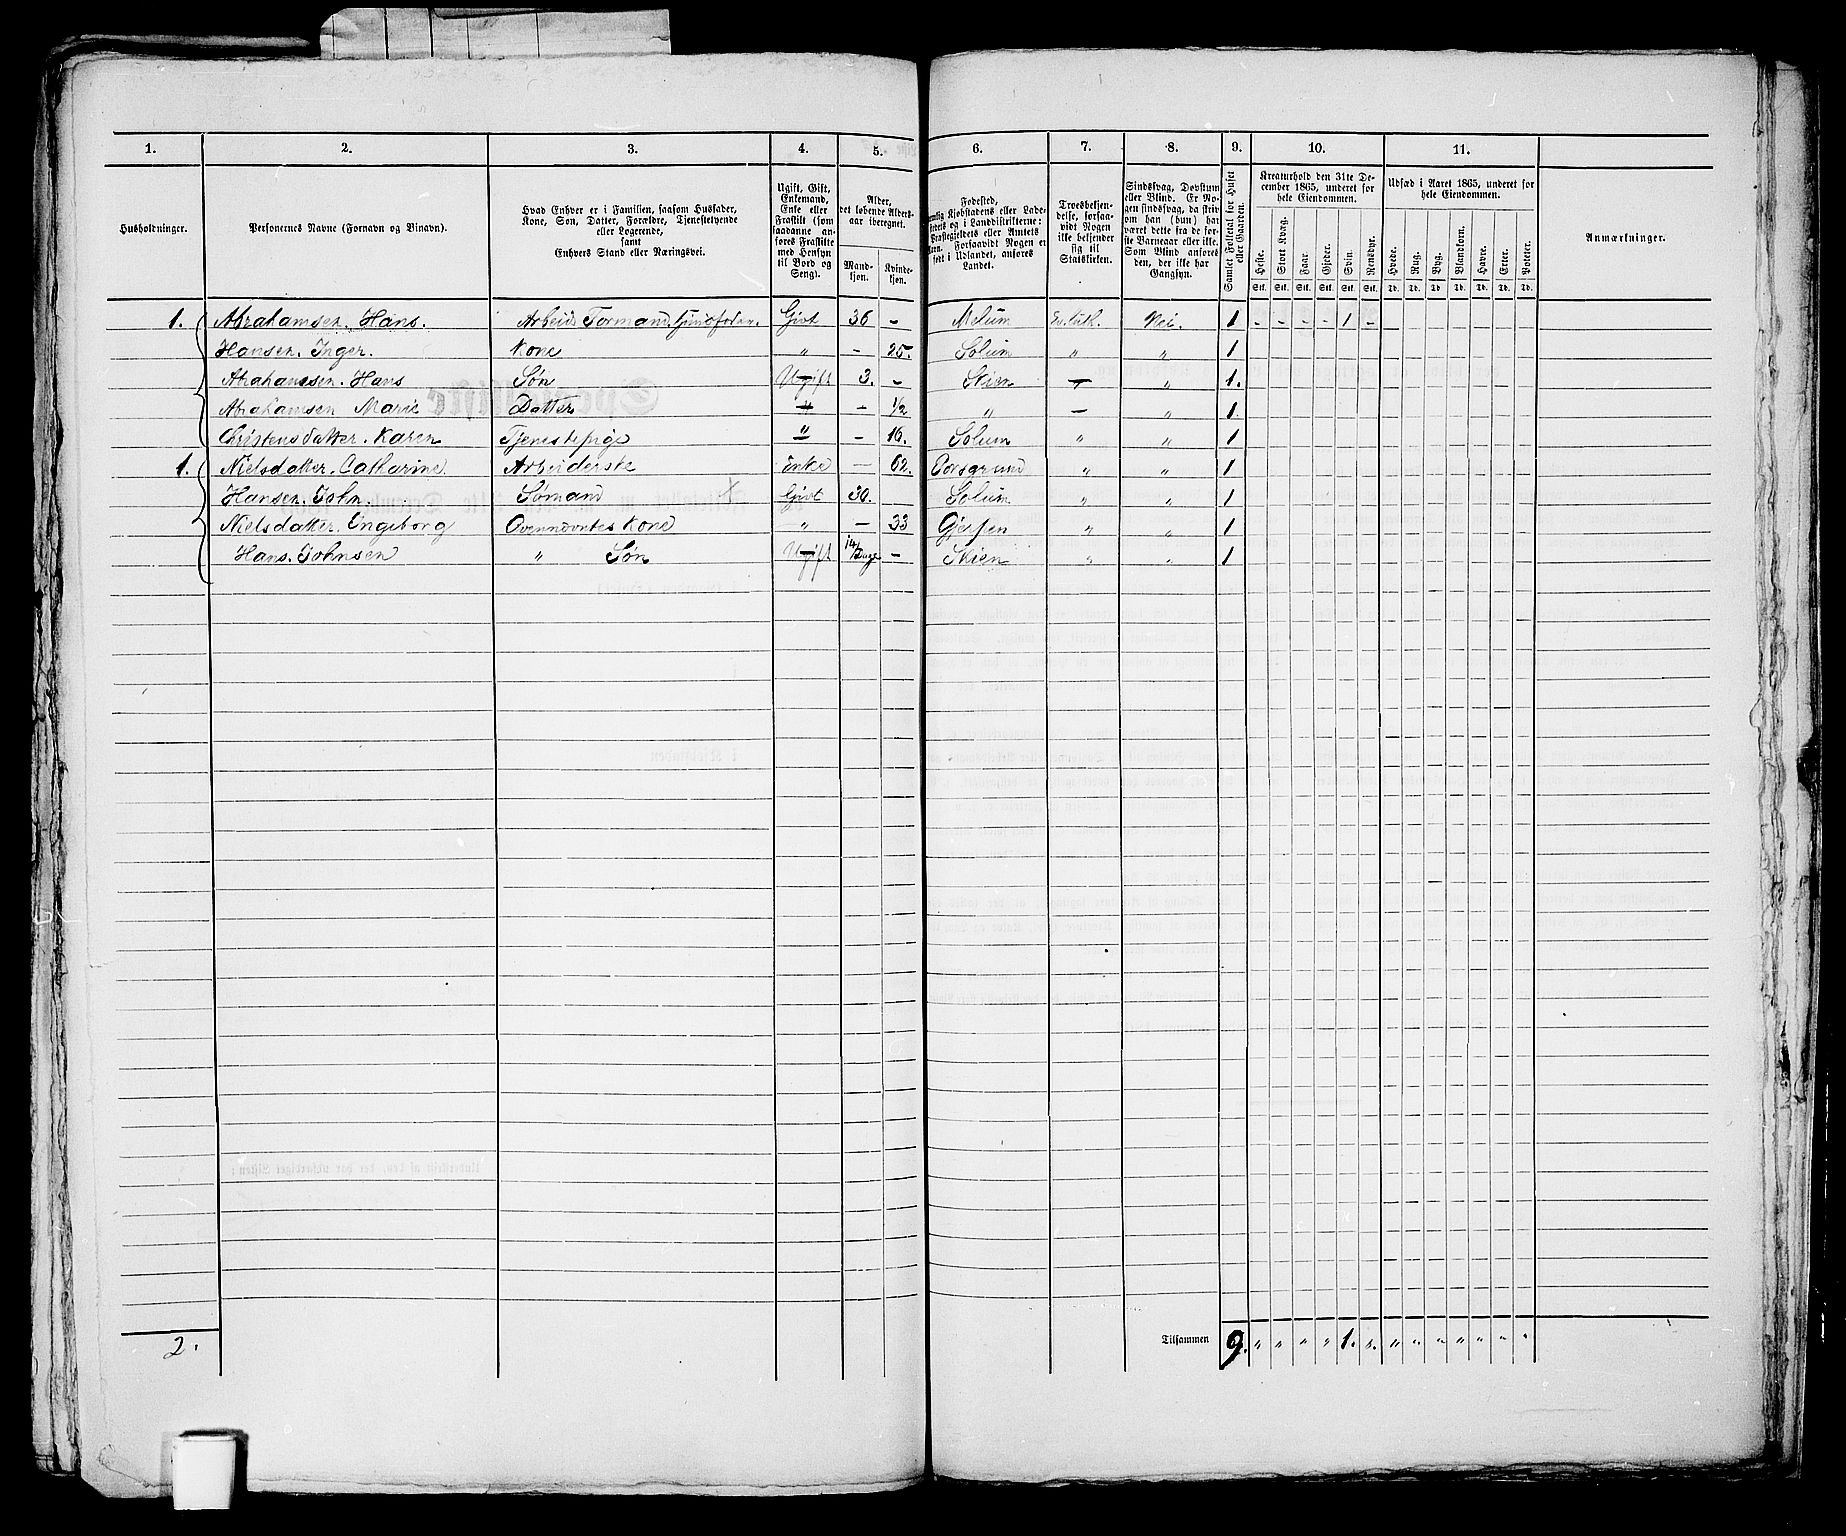 1. 2. 3. 4. 5. 6. 7. 8. 9. 10. 11.
Husholdninger.
Personernes Navne (Fornavn og Binavn).
Hvad Enhver er i Familien, saasom Husfader,
Kone, Søn, Datter, Forældre, Tjenestetyende
eller Logerende,
samt
Enhvers Stand eller Næringsvei.
Ugift, Gift,
Enkemand,
Enke eller
Fraskilt (som
saadanne an-
føres Fraskilte
med Hensyn
til Bord og
Seng).
Alder,
det løbende Alders-
aar iberegnet.
Mand-
kjøn.
Kvinde-
kjøn.
Fødested,
nemlig Kjøbstadens eller Lade-
stedets og i Landdistrikterne:
Præstegjeldets eller Amtets
Navn. Forsaavidt Nogen er
født i Udlandet, anføres
Landet.
Troesbekjen-
delse, forsaa-
vidt Nogen
ikke bekjender
sig til
Statskirken.
Sindssvag, Døvstum
eller Blind. Er No-
gen sindssvag, da skriv
om han (hun) har
været dette fra de før-
ste Barneaar eller ikke.
Som Blind anføres
den, der ikke har
Gangsyn.
Samlet Folketal for Huset
eller Gaarden.
Kreaturhold den 31te De-
cember 1865, underet for
hele Eiendommen.
Heste. Stort Kvæg. Faar. Gjeder. Svin. Rensdyr.
Stk. Stk. Stk. Stk. Stk. Stk.
Udsæd i Aaret 1865, underet for
hele Eiendommen.
Hvede. Rug. Byg. Blandkorn. Havre. Erter. Poteter.
Td. Td. Td. Td. Td. Td. Td.
Anmærkninger.
1. Abrahamsen. Hans. Givt 36 – Melum Ev. luth. Nei. 1 - - - - 1 -
Hansen. Inger. Kone " – 25. Solum " " 1
Abrahamsen. Hans Søn Ugift 3. – Skien – " 1.
Abrahamsen Marie Datter " – 1/2 " – " 1.
Christensdatter. Karen Tjenestepige " – 16. Solum " " 1
1. Nielsdatter. Catharine. Arbeiderske Enke – 62. Porsgrund " " 1
Hansen. John. Sømand Givt 30. Solum " " 1
Nielsdatter. Engeborg Ovennævntes Kone " – 33 Gjerpen " " 1
Hans. Johnsen " Søn Ugift 14/Dage – Skien " " 1
2. Tilsammen 9. " " " " 1. " " " " " " "